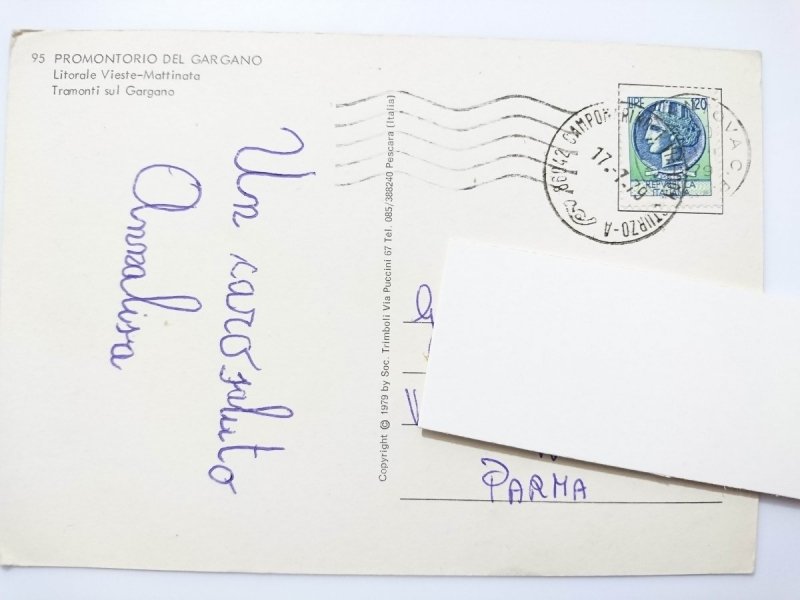 95 PROMONTORIO DEL GARGANO
Litorale Vieste-Mattinata
Tramonti sul Gargano
Un caro saluto
Annalisa
Copyright © 1979 by Soc. Trimboli Via Puccini 67 Tel. 085/388240 Pescara (Italia)
LIRE 120
REPVBBLICA
ITALIANA
17.-7.-79
PARMA